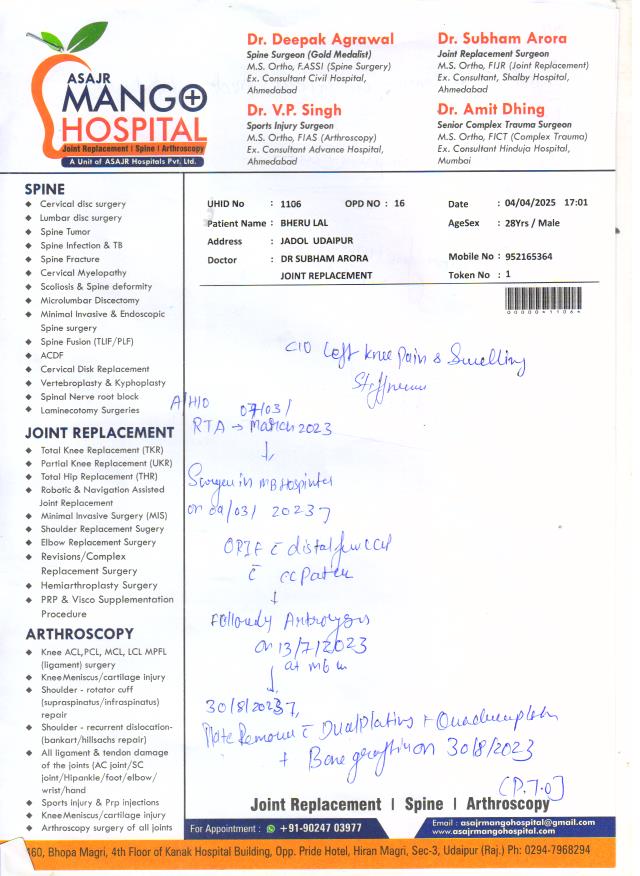 ASAJR
MANGO
HOSPITAL
Joint Replacement | Spine | Arthroscopy
A Unit of ASAJR Hospitals Pvt. Ltd.
Dr. Deepak Agrawal
Spine Surgeon (Gold Medalist)
M.S. Ortho, F.ASSI (Spine Surgery)
Ex. Consultant Civil Hospital,
Ahmedabad
Dr. Subham Arora
Joint Replacement Surgeon
M.S. Ortho, FIJR (Joint Replacement)
Ex. Consultant, Shalby Hospital,
Ahmedabad
Dr. V.P. Singh
Sports Injury Surgeon
M.S. Ortho, FIAS (Arthroscopy)
Ex. Consultant Advance Hospital,
Ahmedabad
Dr. Amit Dhing
Senior Complex Trauma Surgeon
M.S. Ortho, FICT (Complex Trauma)
Ex. Consultant Hinduja Hospital,
Mumbai
SPINE
Cervical disc surgery
Lumbar disc surgery
Spine Tumor
Spine Infection & TB
Spine Fracture
Cervical Myelopathy
Scoliosis & Spine deformity
Microlumbar Discectomy
Minimal Invasive & Endoscopic
Spine surgery
Spine Fusion (TLIF/PLF)
ACDF
Cervical Disk Replacement
Vertebroplasty & Kyphoplasty
Spinal Nerve root block
Laminecotomy Surgeries
JOINT REPLACEMENT
Total Knee Replacement (TKR)
Partial Knee Replacement (UKR)
Total Hip Replacement (THR)
Robotic & Navigation Assisted
Joint Replacement
Minimal Invasive Surgery (MIS)
Shoulder Replacement Sugery
Elbow Replacement Surgery
Revisions/Complex
Replacement Surgery
Hemiarthroplasty Surgery
PRP & Visco Supplementation
Procedure
ARTHROSCOPY
Knee ACL,PCL, MCL, LCL MPFL
(ligament) surgery
Knee Meniscus/cartilage injury
Shoulder - rotator cuff
(supraspinatus/infraspinatus)
repair
Shoulder - recurrent dislocation-
(bankart/hillsachs repair)
All ligament & tendon damage
of the joints (AC joint/SC
joint/Hipankle/foot/elbow/
wrist/hand
Sports injury & Prp injections
Knee Meniscus/cartilage injury
Arthroscopy surgery of all joints
UHID No : 1106 OPD NO : 16 Date : 04/04/2025 17:01
Patient Name : BHERU LAL AgeSex : 28Yrs / Male
Address : JADOL UDAIPUR
Doctor : DR SUBHAM ARORA Mobile No : 952165364
JOINT REPLACEMENT Token No : 1
C/O Left Knee Pain & Swelling
A/H/O 07/03/
RTA → March 2023
↓
on 09/03/ 2023
ORIF c̄ distal
c̄ CC
↓
on 13/7/2023
at MB
↓
30/8/2023
Plate c̄ Dual Plating +
+ Bone grafting on 30/8/2023
(P.T.O)
Joint Replacement | Spine | Arthroscopy
For Appointment : +91-90247 03977
Email : asajrmangohospital@gmail.com
www.asajrmangohospital.com
60, Bhopa Magri, 4th Floor of Kanak Hospital Building, Opp. Pride Hotel, Hiran Magri, Sec-3, Udaipur (Raj.) Ph: 0294-7968294